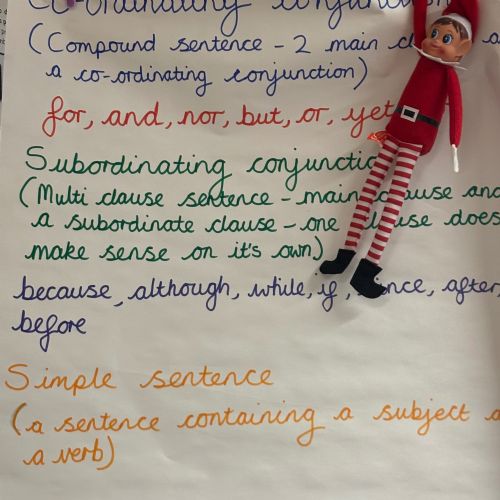 Co-ordinating conjunction
(Compound sentence - 2 main
a co-ordinating conjunction)
for, and, nor, but, or, yet
Subordinating
(Multi clause sentence - main clause and
a subordinate clause - one clause does
make sense on it's own)
because, although, while, if, since, after,
before
Simple sentence
(a sentence containing a subject
a verb)